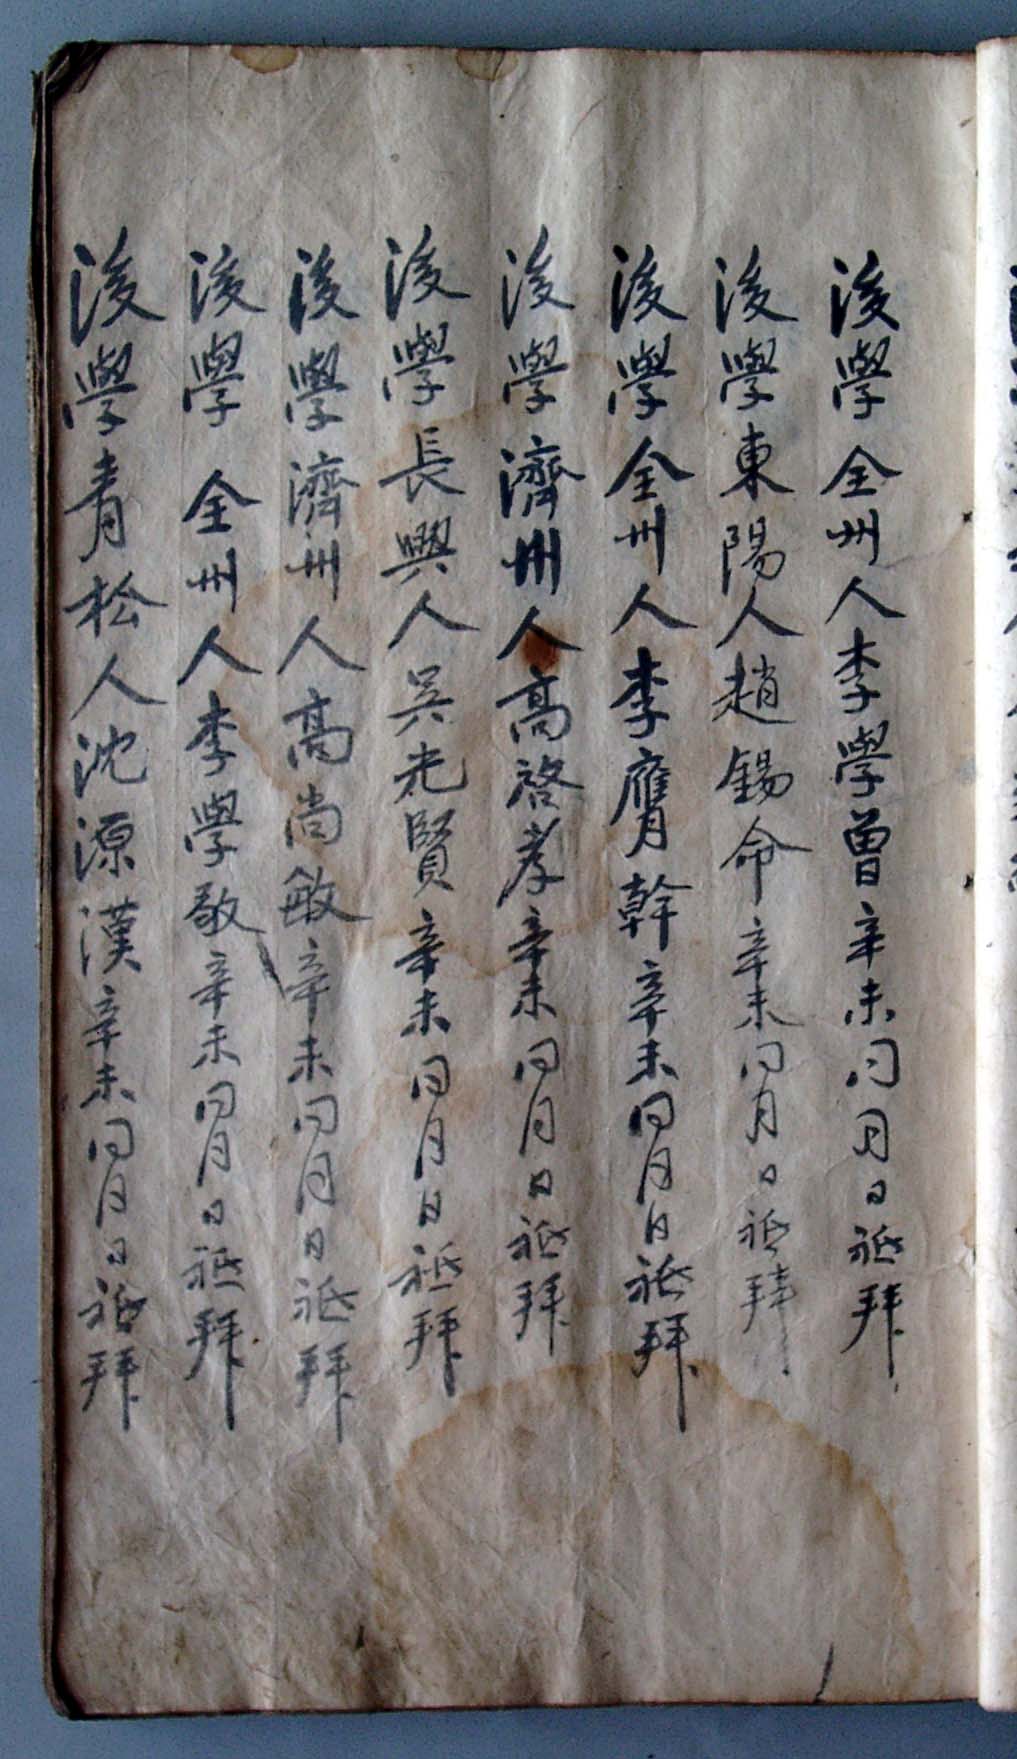 後學全州人李學曾辛未同月日祗拜
後學東陽人趙錫命辛未同月日祗拜
後學全州人李膺幹辛未同月日祗拜
後學濟州人高啓孝辛未同月日祗拜
後學長興人吳光賢辛未同月日祗拜
後學濟州人高尙敏辛未同月日祗拜
後學全州人李學敬辛未同月日祗拜
後學青松人沈源漢辛未同月日祗拜